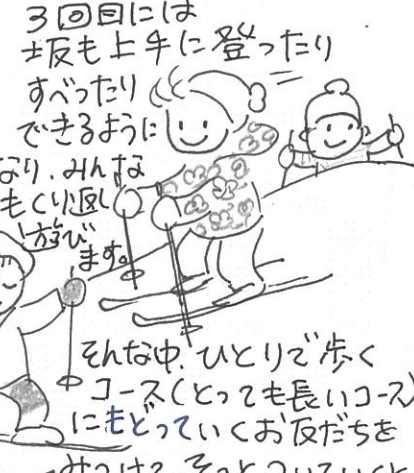 3回目には
坂も上手に登ったり
すべったり
できるように
なり、みんな
もくり返し
遊び
ます。
そんな中、ひとりで歩く
コース(とっても長いコース)
にもどっていくお友だちを